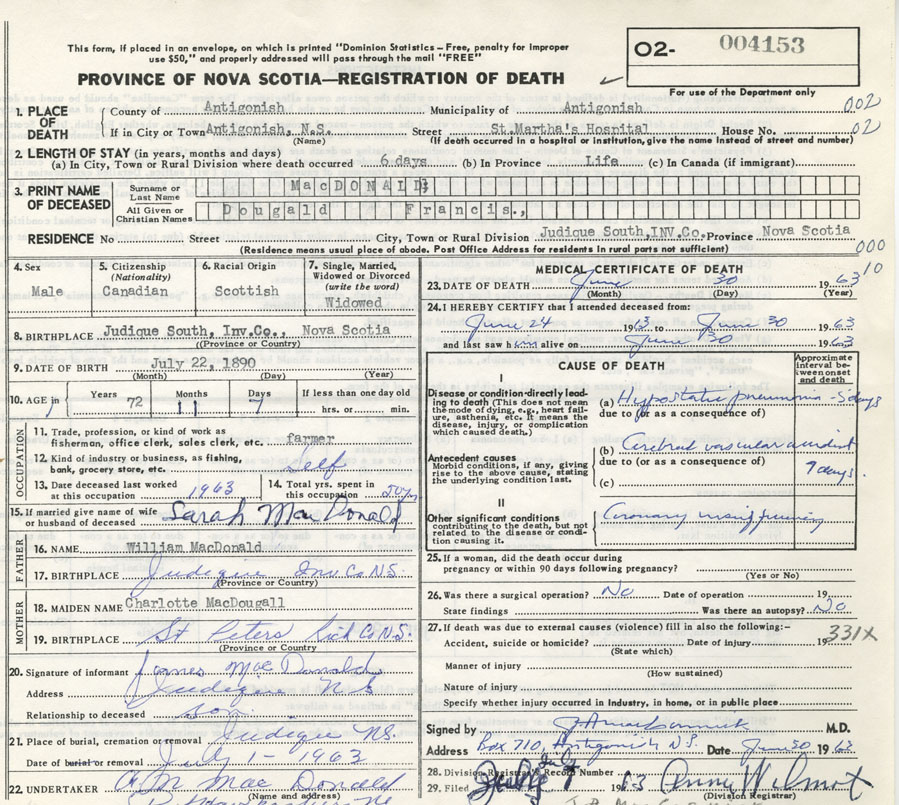 This form, if placed in an envelope, on which is printed "Dominion Statistics – Free, penalty for improper
use $50," and properly addressed will pass through the mail "FREE"
PROVINCE OF NOVA SCOTIA—REGISTRATION OF DEATH
O2- 004153
For use of the Department only
1. PLACE OF DEATH
County of Antigonish Municipality of Antigonish 002
If in City or Town Antigonish, N.S. Street St.Martha's Hospital House No. 02
(Name) (If death occurred in a hospital or institution, give the name instead of street and number)
2. LENGTH OF STAY (in years, months and days)
(a) In City, Town or Rural Division where death occurred 6 days (b) In Province Life (c) In Canada (if immigrant)
3. PRINT NAME OF DECEASED
Surname or Last Name MacDONALD;
All Given or Christian Names Dougald Francis.,
RESIDENCE No Street City, Town or Rural Division Judique South,INV.Co, Province Nova Scotia
(Residence means usual place of abode. Post Office Address for residents in rural parts not sufficient) 000
4. Sex Male
5. Citizenship (Nationality) Canadian
6. Racial Origin Scottish
7. Single, Married, Widowed or Divorced (write the word) Widowed
8. BIRTHPLACE Judique South, Inv.Co., Nova Scotia
(Province or Country)
9. DATE OF BIRTH July 22, 1890
(Month) (Day) (Year)
10. AGE Years 72 Months 11 Days 7 If less than one day
hrs. or min.
OCCUPATION
11. Trade, profession, or kind of work as
fisherman, office clerk, sales clerk, etc. farmer
12. Kind of industry or business, as fishing,
bank, grocery store, etc. Self
13. Date deceased last worked
at this occupation 1963
14. Total yrs. spent in
this occupation 50 yr
15. If married give name of wife
or husband of deceased Sarah MacDonald
FATHER
16. NAME William MacDonald
17. BIRTHPLACE Judique Inv Co N.S.
(Province or Country)
MOTHER
18. MAIDEN NAME Charlotte MacDougall
19. BIRTHPLACE St Peters Rich Co N.S.
(Province or Country)
20. Signature of informant James MacDonald
Address Judique N S
Relationship to deceased son
21. Place of burial, cremation or removal Judique NS.
Date of burial or removal July 1 - 1963
22. UNDERTAKER MacDonald
(Name and address)
MEDICAL CERTIFICATE OF DEATH
23. DATE OF DEATH June 30 1963 10
(Month) (Day) (Year)
24. I HEREBY CERTIFY that I attended deceased from:
June 24 1963 to June 30 1963
and last saw h alive on June 30 1963
CAUSE OF DEATH
Approximate interval between onset and death
I
Disease or condition directly leading to death (This does not mean the mode of dying, e.g., heart failure, asthenia, etc. It means the disease, injury, or complication which caused death.)
(a) Hypostatic pneumonia - 5 days
due to (or as a consequence of)
Antecedent causes
Morbid conditions, if any, giving rise to the above cause, stating the underlying condition last.
(b) Cerebral vascular accident
due to (or as a consequence of) 7 days.
(c)
II
Other significant conditions
contributing to the death, but not related to the disease or condition causing it. Coronary insufficiency
25. If a woman, did the death occur during
pregnancy or within 90 days following pregnancy?
(Yes or No)
26. Was there a surgical operation? No Date of operation 19
State findings Was there an autopsy? No
27. If death was due to external causes (violence) fill in also the following:-
Accident, suicide or homicide? Date of injury 19 331X
(State which)
Manner of injury
(How sustained)
Nature of injury
Specify whether injury occurred in Industry, in home, or in public place
Signed by M.D.
Address Box 710, Antigonish N.S. Date June 30 1963
28. Division Registrar's Record Number
29. Filed July 1963 Anne Wilmot
(Division Registrar)